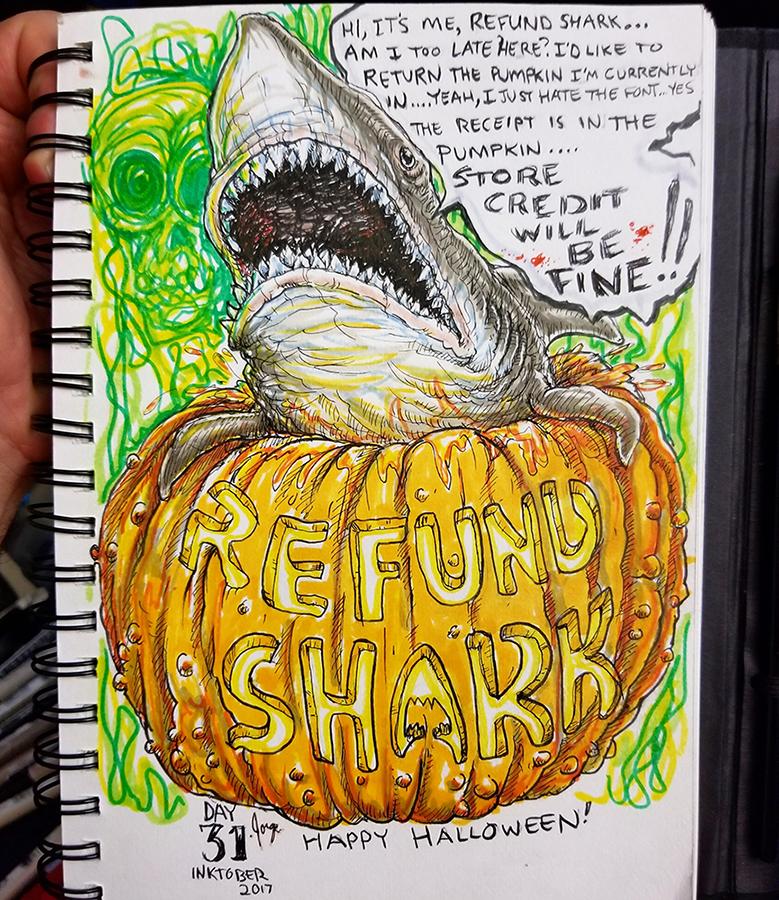 HI, IT'S ME, REFUND SHARK...
AM I TOO LATE HERE? I'D LIKE TO
RETURN THE PUMPKIN I'M CURRENTLY
IN....YEAH, I JUST HATE THE FONT...YES
THE RECEIPT IS IN THE
PUMPKIN....
STORE
CREDIT
WILL
BE
FINE!!
REFUND
SHARK
DAY
31 Jorge
HAPPY HALLOWEEN!
INKTOBER
2017